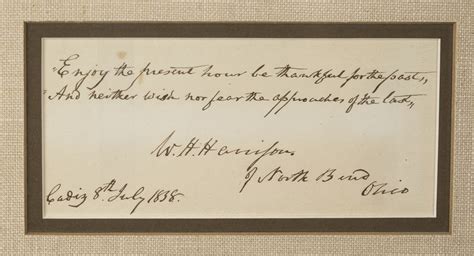 Enjoy the present hour be thankful for the past,
And neither wish nor fear the approaches of the last,
W. H. Harrison
of North Bend
Ohio
Cadiz 8th July 1838.